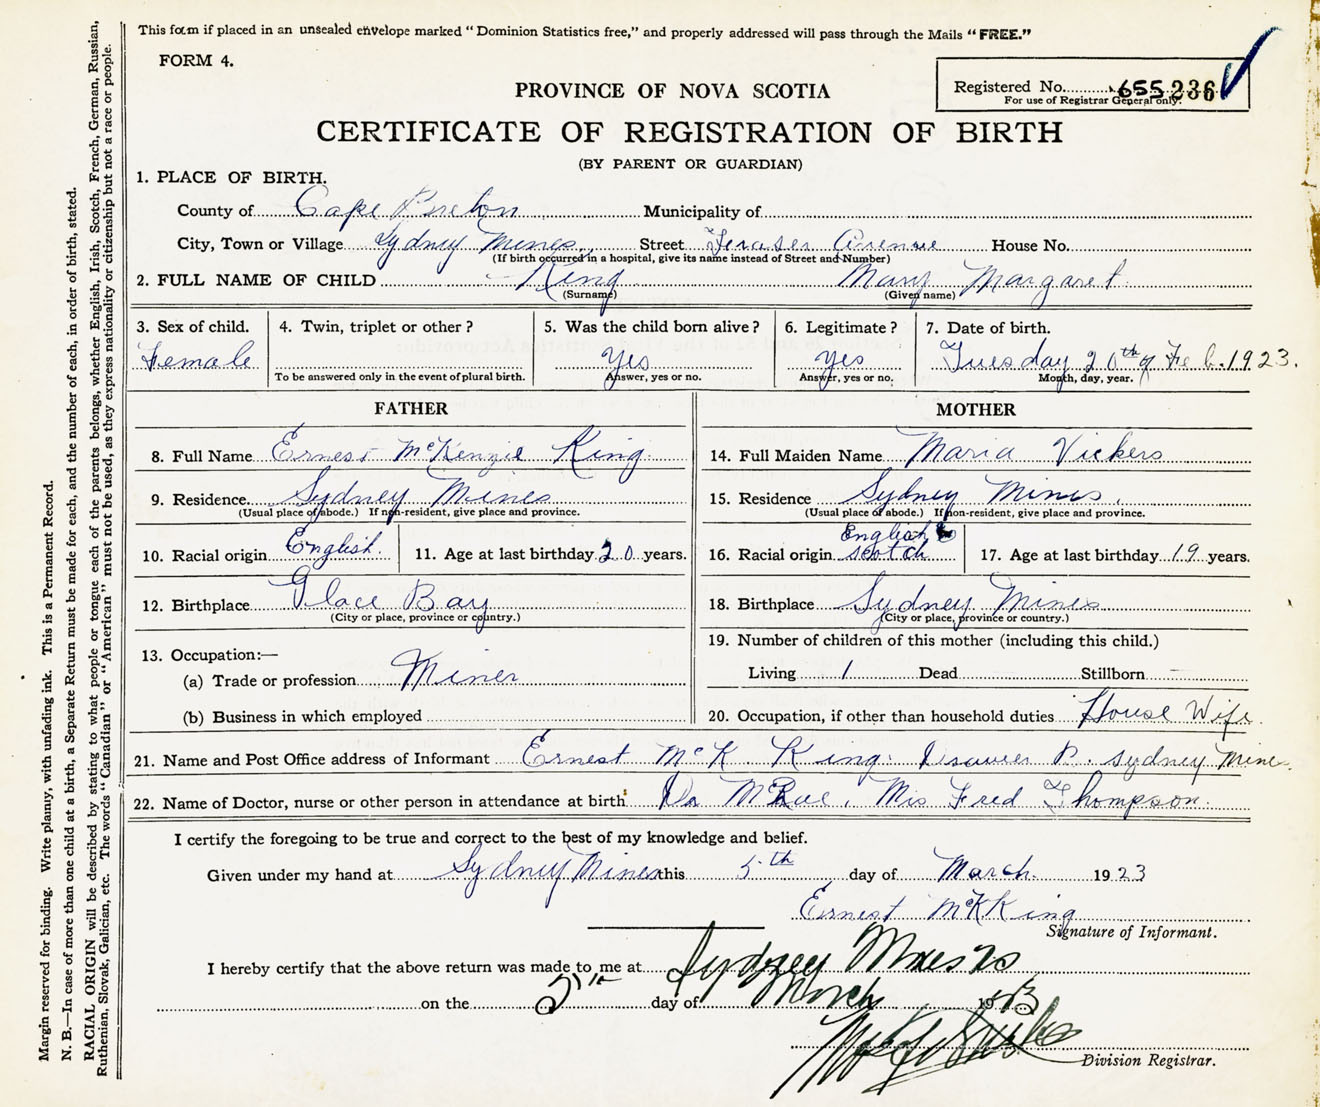 This form if placed in an unsealed envelope marked "Dominion Statistics free," and properly addressed will pass through the Mails "FREE."
FORM 4.
Registered No. 655236
For use of Registrar General only.
PROVINCE OF NOVA SCOTIA
CERTIFICATE OF REGISTRATION OF BIRTH
(BY PARENT OR GUARDIAN)
1. PLACE OF BIRTH.
County of Cape Breton Municipality of
City, Town or Village Sydney Mines Street Fraser Avenue House No.
(If birth occurred in a hospital, give its name instead of Street and Number)
2. FULL NAME OF CHILD King Mary Margaret
(Surname) (Given name)
3. Sex of child. 4. Twin, triplet or other? 5. Was the child born alive? 6. Legitimate? 7. Date of birth.
Female yes yes Tuesday 20th of Feb. 1923.
To be answered only in the event of plural birth. Answer, yes or no. Answer, yes or no. Month, day, year.
FATHER MOTHER
8. Full Name Ernest McKenzie King 14. Full Maiden Name Maria Vickers
9. Residence. Sydney Mines 15. Residence Sydney Mines.
(Usual place of abode.) If non-resident, give place and province. (Usual place of abode.) If non-resident, give place and province.
10. Racial origin English 11. Age at last birthday 20 years. 16. Racial origin English & Scotch 17. Age at last birthday 19 years.
12. Birthplace Glace Bay 18. Birthplace Sydney Mines
(City or place, province or country.) (City or place, province or country.)
13. Occupation:— 19. Number of children of this mother (including this child.)
(a) Trade or profession Miner Living 1 Dead Stillborn —
(b) Business in which employed 20. Occupation, if other than household duties House Wife
21. Name and Post Office address of Informant Ernest McK King. Drawer P. Sydney Mines.
22. Name of Doctor, nurse or other person in attendance at birth Dr McRae, Mis Fred Thompson.
I certify the foregoing to be true and correct to the best of my knowledge and belief.
Given under my hand at Sydney Mines this 5th day of March 1923
Ernest McK King
Signature of Informant.
I hereby certify that the above return was made to me at Sydney Mines
on the 5th day of March 1923
Division Registrar.
Margin reserved for binding. Write plainly, with unfading ink. This is a Permanent Record.
N. B.—In case of more than one child at a birth, a Separate Return must be made for each, and the number of each, in order of birth, stated.
RACIAL ORIGIN will be described by stating to what people or tongue each of the parents belongs, whether English, Irish, Scotch, French, German, Russian,
Ruthenian, Slovak, Galician, etc. The words "Canadian" or "American" must not be used, as they express nationality or citizenship but not a race or people.